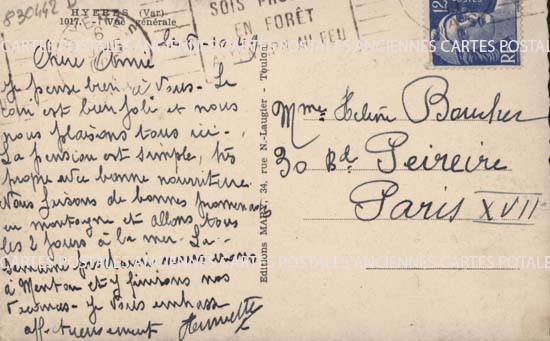 830442
HYÈRES (Var)
1017. - Vue générale
SOIS
EN FORÊT
AU FEU
RF
Chère Amie
Je pense bien à vous - Le
coin est bien joli et nous
nous plaisons tous ici -
La pension est simple, très
propre avec bonne nourriture.
Nous faisons de bonnes promenades
en montagne et allons tous
les 2 jours à la mer - La
semaine prochaine nous irons
à Menton et y finirons nos
vacances - Je vous embrasse
affectueusement Henriette
Editions MAR, 34, rue N.-Laugier - Toulon
Mme Hélène Boucher
30 Bd Peireire
Paris XVII
CARTES POSTALES ANCIENNES CARTES POSTALES ANCIENNES CARTES POSTALES